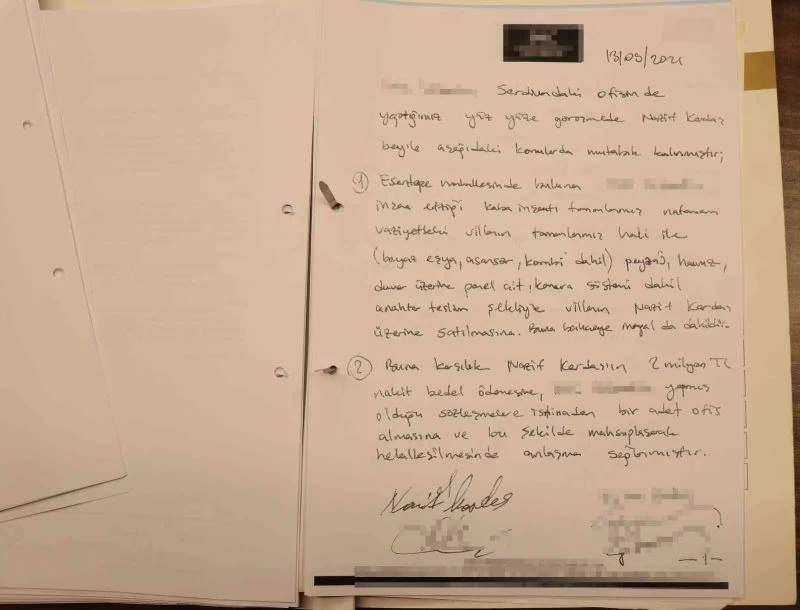 13/03/2021
Serdivandaki ofisinde
yaptığımız yüz yüze görüşmede Nazif Kardaş
beyile aşağıdaki konularda mutabık kalınmıştır;
1 Esentepe mahallesinde buluna
inşaa ettiği kaba inşaatı tamamlanmış natamam
vaziyetteki villanın tamamlanmış hali ile
(beyaz eşya, asansör, kombi dahil) peyzaj, havuz,
duvar üzerine panel çit, kamera sistemi dahil
anahtar teslim şekliyle villanın Nazif Kardaş
üzerine satılmasına. Buna bahçeye meyal da dahildir.
2 Buna karşılık Nazif Kardaşın 2 milyon TL
nakit bedel ödemesine, yapmış
olduğu sözleşmelere istinaden bir adet ofis
almasına ve bu şekilde mahsuplaşarak
helalleşilmesinde anlaşma sağlanmıştır.
Nazif Kardaş
-1-